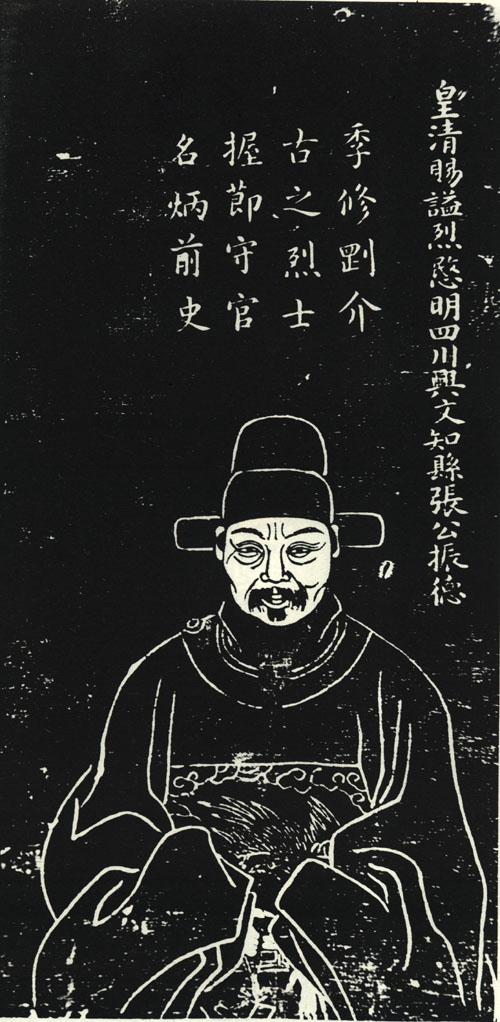 皇清賜謚烈愍明四川興文知縣張公振德
季修剛介
古之烈士
握節守官
名炳前史